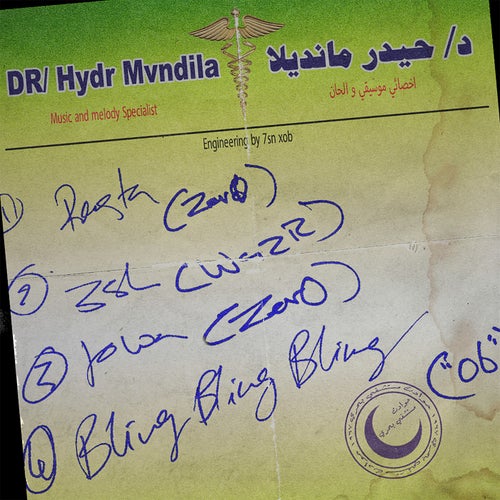 DR/ Hydr Mvndila
د/ حيدر مانديلا
Music and melody Specialist
اخصائي موسيقي و الحان
Engineering by 7sn xob
1) (Zero)
2) 3sl (WazR)
3) (Zero)
4) Bling Bling Bling ("Ob"